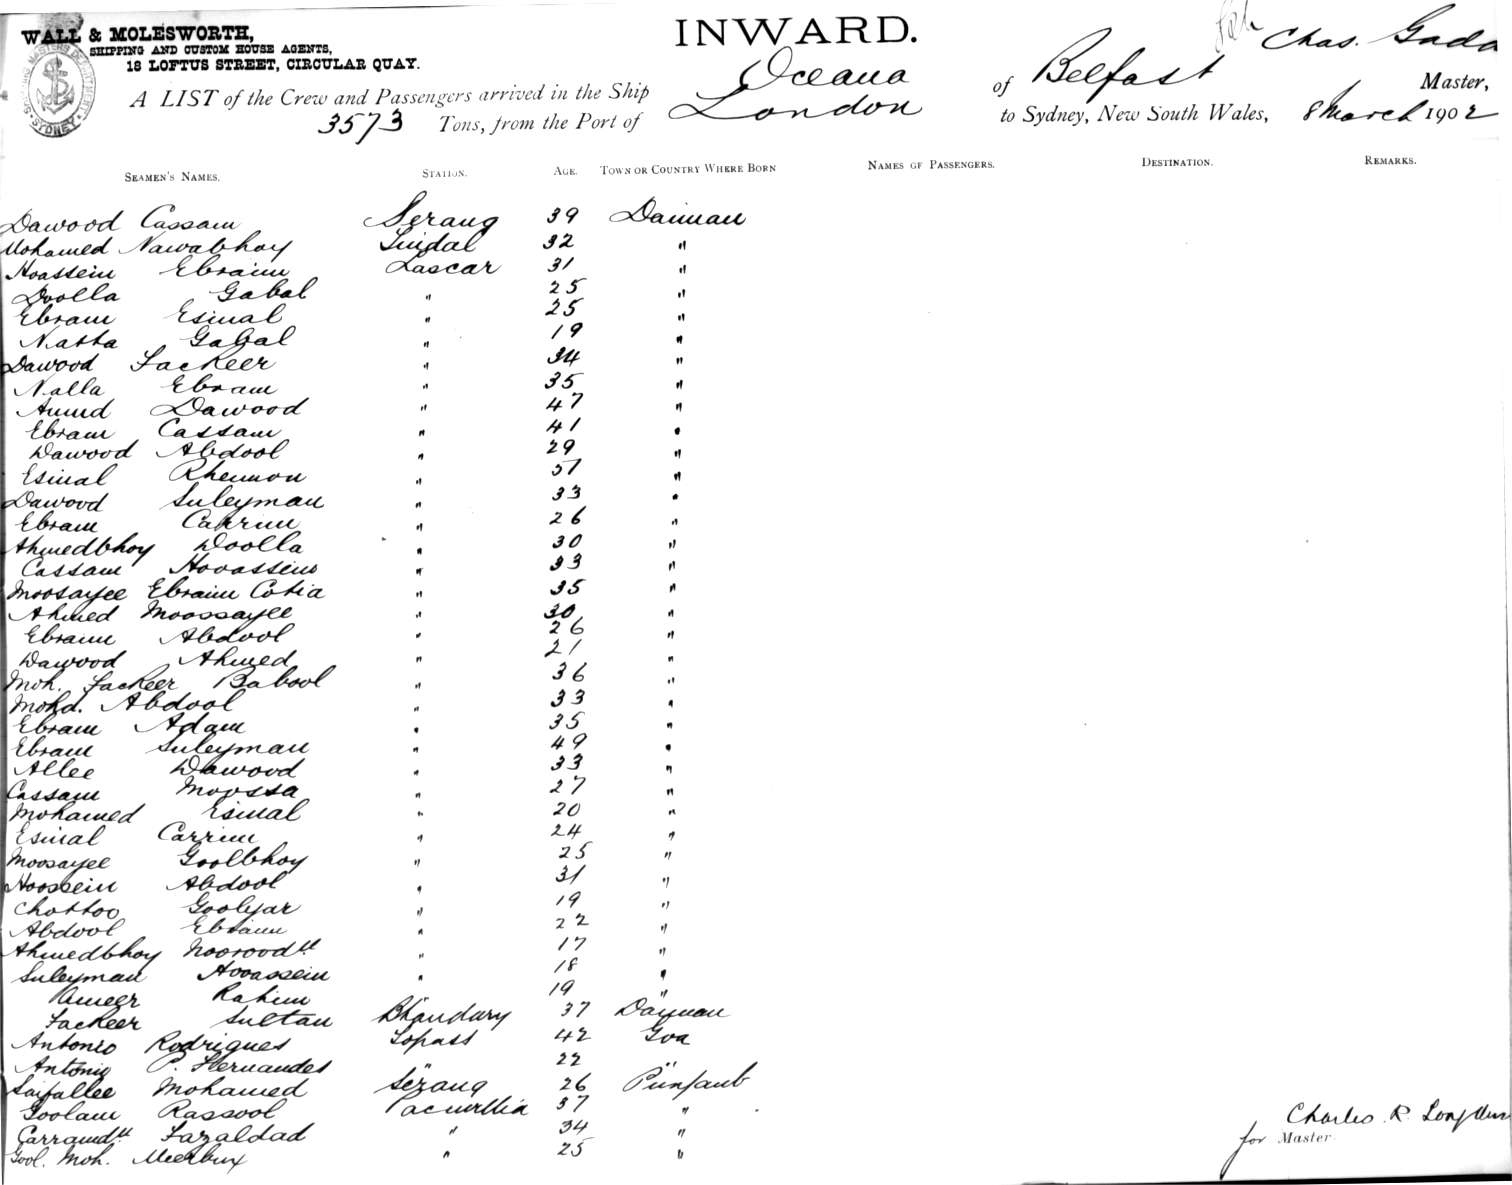 WALL & MOLESWORTH,
SHIPPING AND CUSTOM HOUSE AGENTS,
18 LOFTUS STREET, CIRCULAR QUAY.
INWARD.
A LIST of the Crew and Passengers arrived in the Ship Oceana of Belfast Chas. Gadd Master,
3573 Tons, from the Port of London to Sydney, New South Wales, 8 March 1902
SEAMEN'S NAMES. STATION. AGE. TOWN OR COUNTRY WHERE BORN NAMES OF PASSENGERS. DESTINATION. REMARKS.
Dawood Cassam Serang 39 Damaun
Mohamed Nawabhoy Tindal 32 "
Hoassein Ebraim Lascar 31 "
Doolla Gabal " 25 "
Ebram Esmal " 25 "
Natha Gabal " 19 "
Dawood Fackeer " 34 "
Nalla Ebram " 35 "
Dawood " 47 "
Ebram Cassam " 41 "
Dawood Abdool " 29 "
Esmal Rhemon " 51 "
Dawood Suleyman " 33 "
Ebram Carrim " 26 "
Ahmedbhoy Doolla " 30 "
Cassam Hooassein " 33 "
Moosayee Ebraim Cotia " 35 "
Ahmed Moossayee " 30 "
Ebram Abdool " 26 "
Dawood Ahmed " 21 "
Moh. Fackeer Babool " 36 "
Mohd. Abdool " 33 "
Ebram Adam " 35 "
Ebram Suleyman " 49 "
Allee Dawood " 33 "
Cassam Moossa " 27 "
Mohamed Esmal " 20 "
Esmal Carrim " 24 "
Moosayee Goolbhoy " 25 "
Hoossein Abdool " 31 "
Chottoo Goolyar " 19 "
Abdool Ebraim " 22 "
Ahmedbhoy Noorood " 17 "
Suleyman Hooassein " 18 "
Ameer Rahim " 19 "
Fackeer Sultan Bhandary 37 Damaun
Antonio Rodrigues Topass 42 Goa
Antonio P. Hernandes " 22 "
Saifallee Mohamed Serang 26 Punjaub
Goolam Rassool 37 "
Fazaldad " 34 "
Gool. Moh. Meerbux " 25 "
Charles R. Longden
for Master